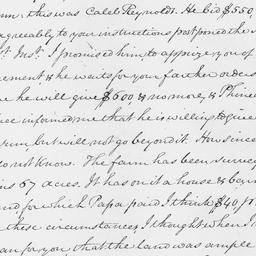 this was Caleb Reynolds. He bid $550
agreeably to your instructions postponed the
Inst. I promised him to apprize you of
& he waits for your farther orders
he will give $600, & no more, &
informed me that he is willing to give
sum but will not go beyond it. How since
do not know. The farm has been
57 acres. It has on it a house & barn
for which Papa paid I think $40, pr.
these circumstances, I thought when I
for you that the land was ample